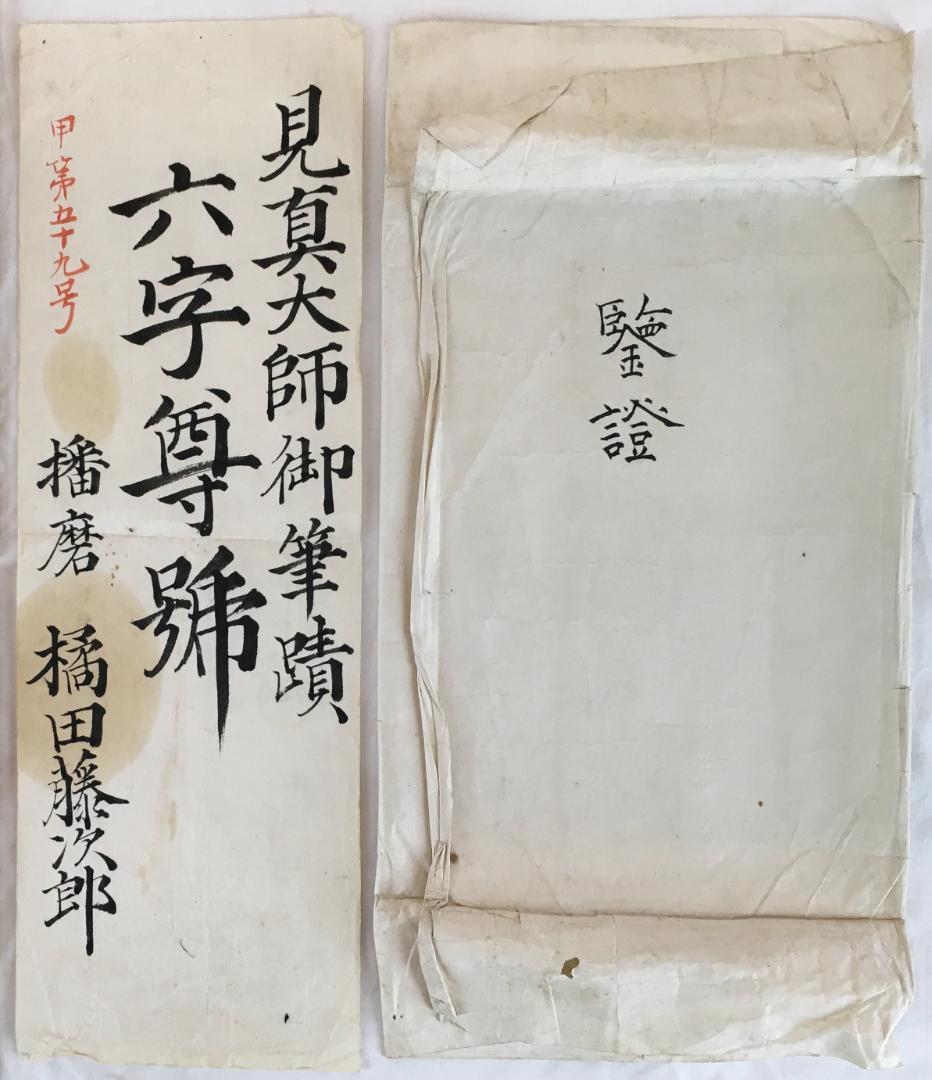 見真大師御筆蹟
六字尊號
播磨 橘田藤次郎
甲第五十九号
鑒證